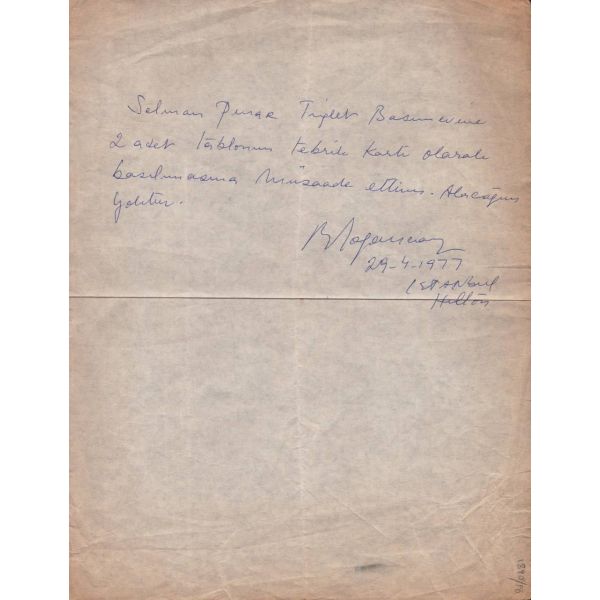 Selman Pınar Tiglet Basımevine
2 adet tablomun tebrik kartı olarak
basılmasına müsaade ettim. Alacağım
yoktur.
29-4-1977
İSTANbul
Hilton